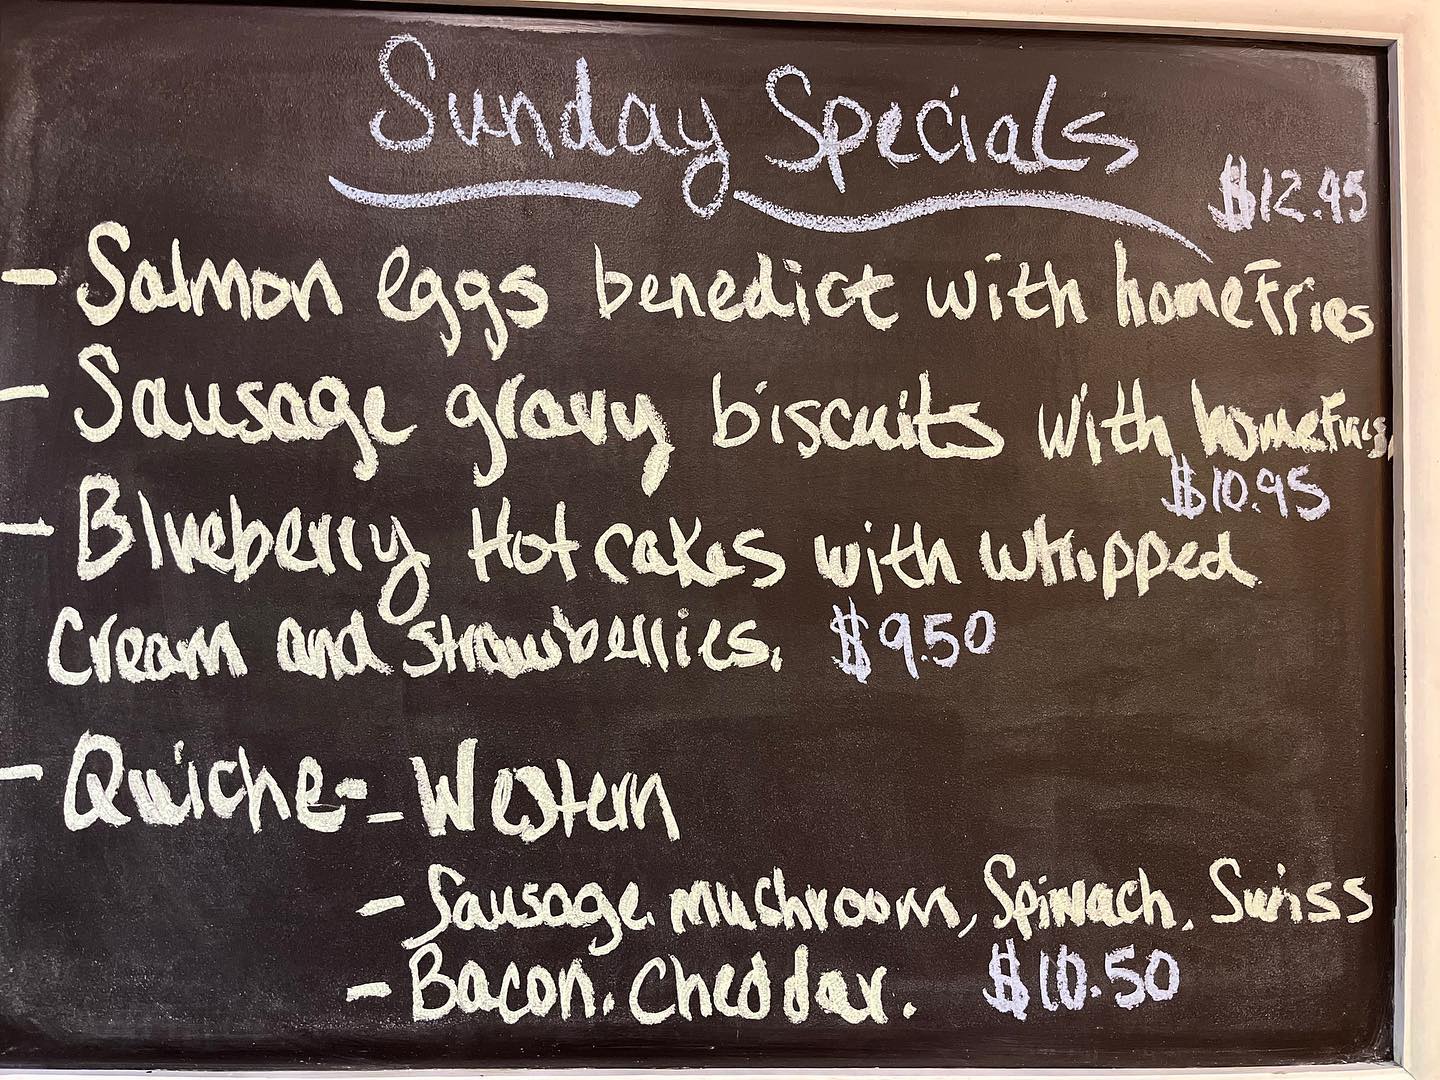 Sunday Specials
$12.95
- Salmon eggs benedict with homeFries
- Sausage gravy biscuits with homeFries.
$10.95
- Blueberry Hot cakes with whipped
Cream and strawberries. $9.50
- Quiche - - Western
- Sausage. mushroom, Spinach. Swiss
- Bacon. Cheddar. $10.50